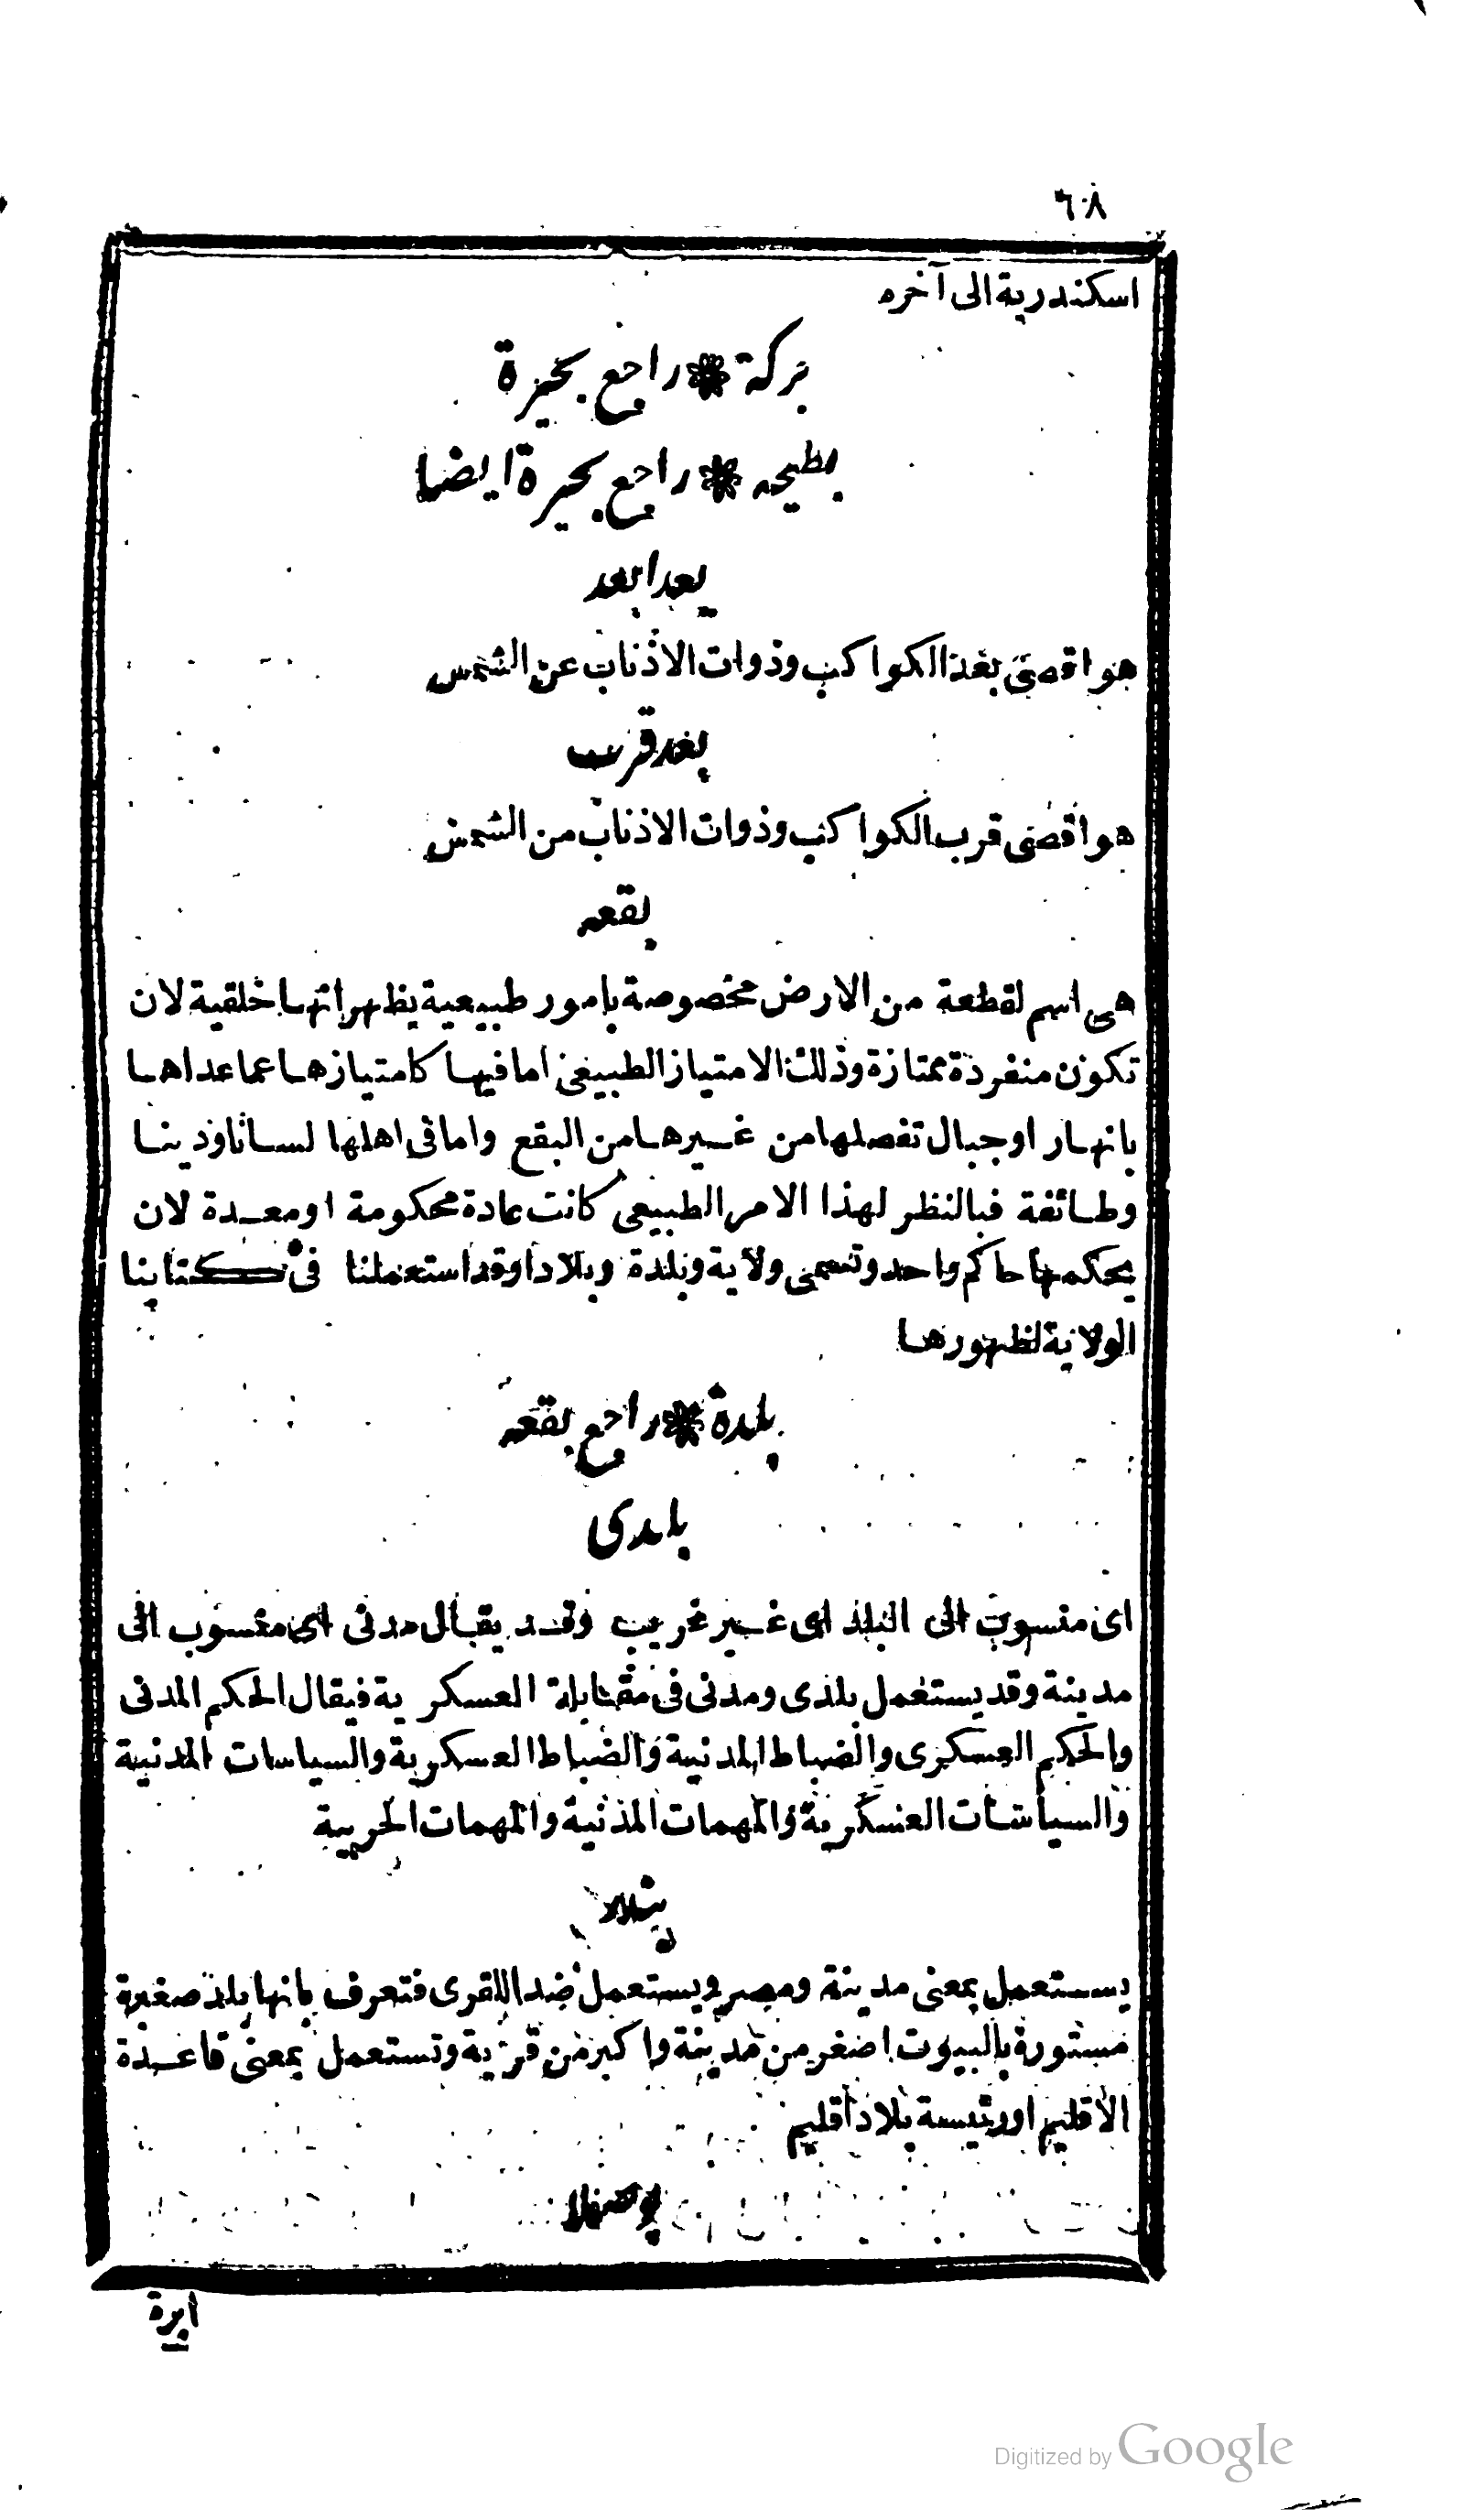 ٦٨
اسكندرية الى آخره
بركة * راجع بحيرة
بطيحه * راجع بحيرة ايضا
بعد ابعد
هو اقصى بعد الكواكب وذوات الاذناب عن الشمس
بعد قرب
هو اقصى قرب الكواكب وذوات الاذناب من الشمس
بقعه
هى اسم لقطعة من الارض مخصوصة بامور طبيعية يظهر انها خلقية لان
تكون منفردة ممتازة وذلك الامتياز الطبيعى اما فيها كامتيازها عما عداها
بانهار او جبال تفصلها من غيرها من البقع واما فى اهلها لسانا ودينا
وطائفة فبالنظر لهذا الامر الطبيعى كانت عادة محكومة او معدة لان
يحكمها حاكم واحد وتسمى ولاية وبلدة وبلادا وقد استعملنا فى كتابنا
الولاية لظهورها
بلدة * راجع بقعه
بلدى
اى منسوب الى البلد اى غير غريب وقد يقال مدنى اى منسوب الى
مدينة وقد يستعمل بلدى ومدنى فى مقابلة العسكرية فيقال الحكم المدنى
والحكم العسكرى والضباط المدنية والضباط العسكرية والسياسات المدنية
والسياسات العسكرية والمهمات المدنية والمهمات الحربية
يستعمل بمعنى مدينة ومصر ويستعمل ضد القرى فتعرف بانها بلد صغيرة
مستورة بالبيوت اصغر من مدينة واكبر من قرية وتستعمل بمعنى قاعدة
الاقليم او رئيسة بلاد اقليم
بوصلا
ابرة
Digitized by Google